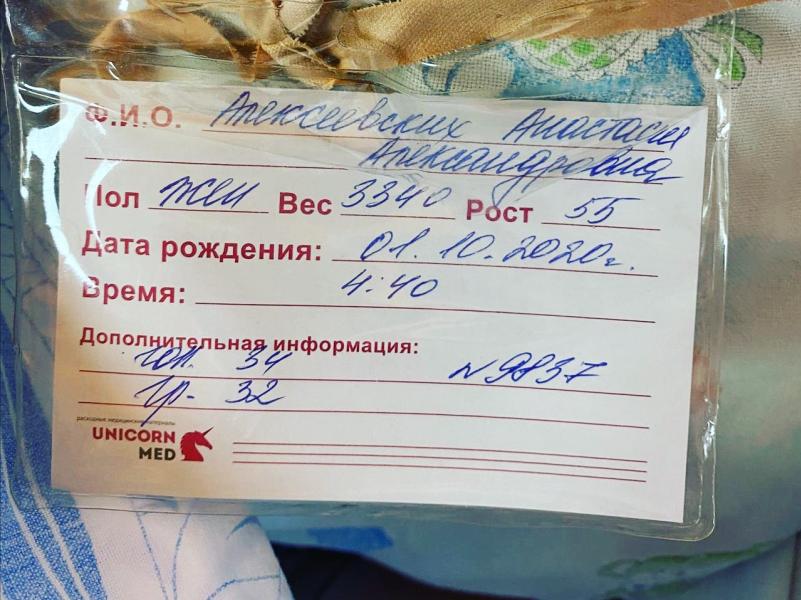 Ф.И.О. Алексеевских Анастасия
Александровна
Пол жен Вес 3340 Рост 55
Дата рождения: 01.10.2020г.
Время: 4:40
Дополнительная информация:
гол. 34 N9837
гр. 32
расходные медицинские материалы
UNICORN
MED